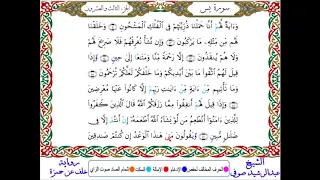 سورة يس
الجزء الثالث والعشرون
وَءَايَةٌ لَّهُمْ أَنَّا حَمَلْنَا ذُرِّيَّتَهُمْ فِي ٱلْفُلْكِ ٱلْمَشْحُونِ ٤١ وَخَلَقْنَا
لَهُم مِّن مِّثْلِهِۦ مَا يَرْكَبُونَ ٤٢ وَإِن نَّشَأْ نُغْرِقْهُمْ فَلَا صَرِيخَ لَهُمْ
وَلَا هُمْ يُنقَذُونَ ٤٣ إِلَّا رَحْمَةً مِّنَّا وَمَتَٰعًا إِلَىٰ حِينٍ ٤٤ وَإِذَا
قِيلَ لَهُمُ ٱتَّقُوا۟ مَا بَيْنَ أَيْدِيكُمْ وَمَا خَلْفَكُمْ لَعَلَّكُمْ تُرْحَمُونَ ٤٥
وَمَا تَأْتِيهِم مِّنْ ءَايَةٍ مِّنْ ءَايَٰتِ رَبِّهِمْ إِلَّا كَانُوا۟ عَنْهَا مُعْرِضِينَ
٤٦ وَإِذَا قِيلَ لَهُمْ أَنفِقُوا۟ مِمَّا رَزَقَكُمُ ٱللَّهُ قَالَ ٱلَّذِينَ كَفَرُوا۟
لِلَّذِينَ ءَامَنُوٓا۟ أَنُطْعِمُ مَن لَّوْ يَشَآءُ ٱللَّهُ أَطْعَمَهُۥٓ إِنْ أَنتُمْ إِلَّا فِي
ضَلَٰلٍ مُّبِينٍ ٤٧ وَيَقُولُونَ مَتَىٰ هَٰذَا ٱلْوَعْدُ إِن كُنتُمْ صَٰدِقِينَ
الشيخ
عبدالرشيد صوفي
الحرف المخالف لحفص الإدغام الإمالة السكت إشمام الصاد صوت الزاي
رواية
خلف عن حمزة